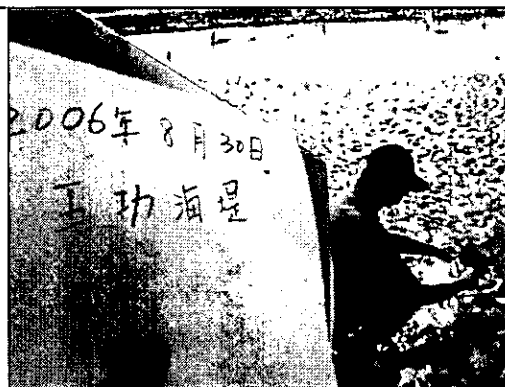 2006年 8月30日
王功海堤